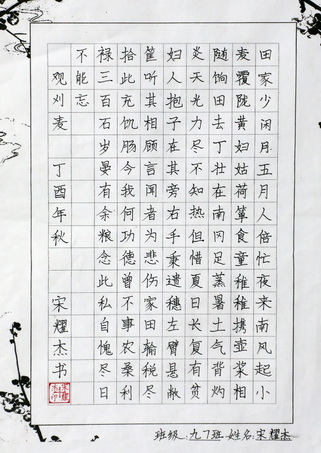 田家少闲月五月人倍忙夜来南风起小
麦覆陇黄妇姑荷箪食童稚稚携壶浆相
随饷田去丁壮在南冈足蒸暑土气背灼
炎天光力尽不知热但惜夏日长复有贫
妇人抱子在其旁右手秉遗穗左臂悬敝
筐听其相顾言闻者为悲伤家田输税尽
拾此充饥肠今我何功德曾不事农桑利
禄三百石岁晏有余粮念此私自愧尽日
不能忘
观刈麦 丁酉年秋 宋耀杰书
班级:九7班 姓名:宋耀杰